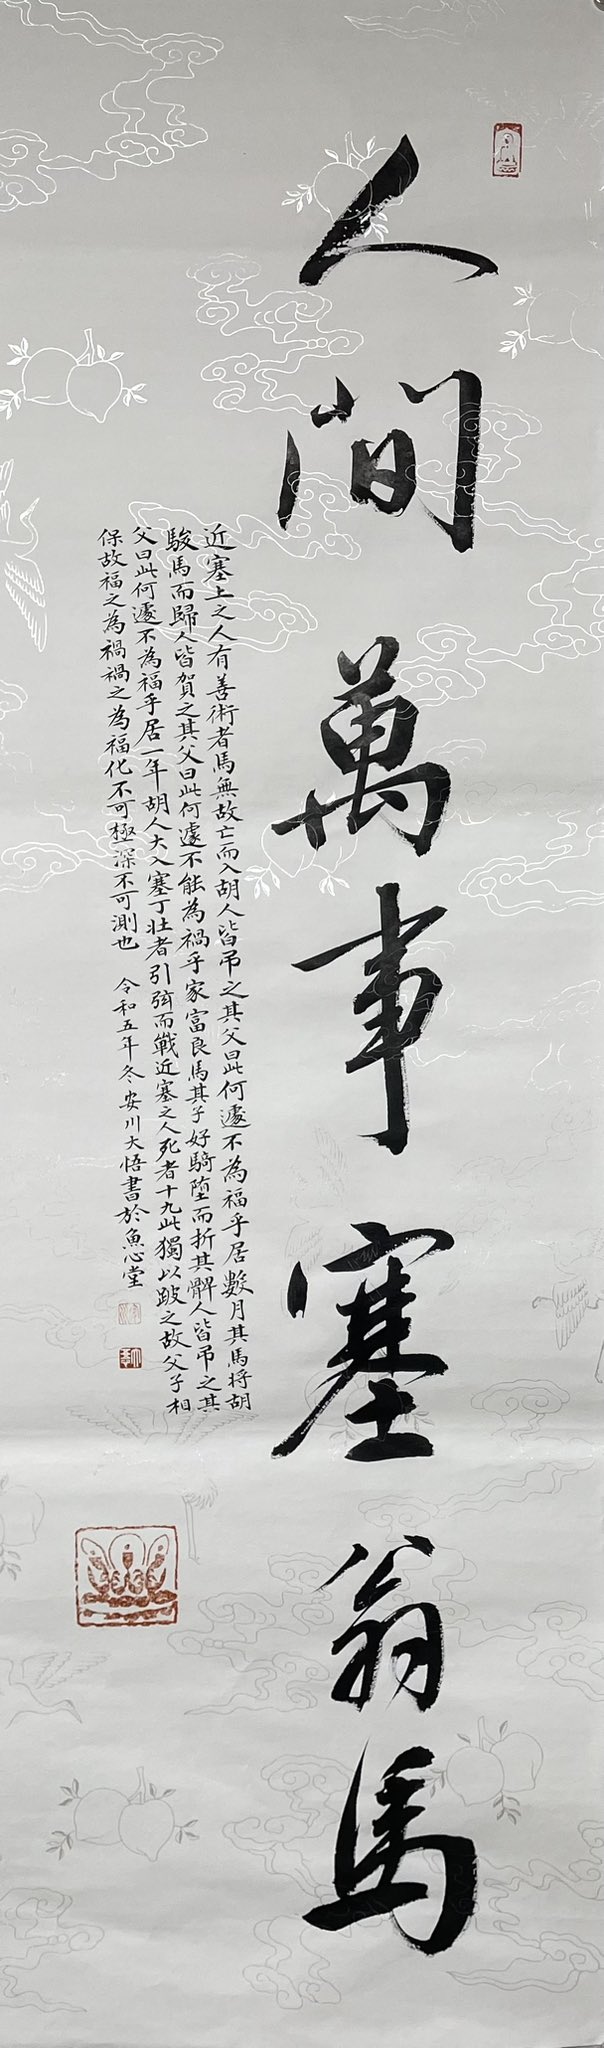 人間萬事塞翁馬
近塞上之人有善術者馬無故亡而入胡人皆吊之其父曰此何遽不為福乎居數月其馬将胡
駿馬而歸人皆賀之其父曰此何遽不能為禍乎家富良馬其子好騎堕而折其髀人皆吊之其
父曰此何遽不為福乎居一年胡人大入塞丁壯者引弦而戰近塞之人死者十九此獨以跛之故父子相
保故福之為禍禍之為福化不可極深不可測也 令和五年冬安川大悟書於魚心堂